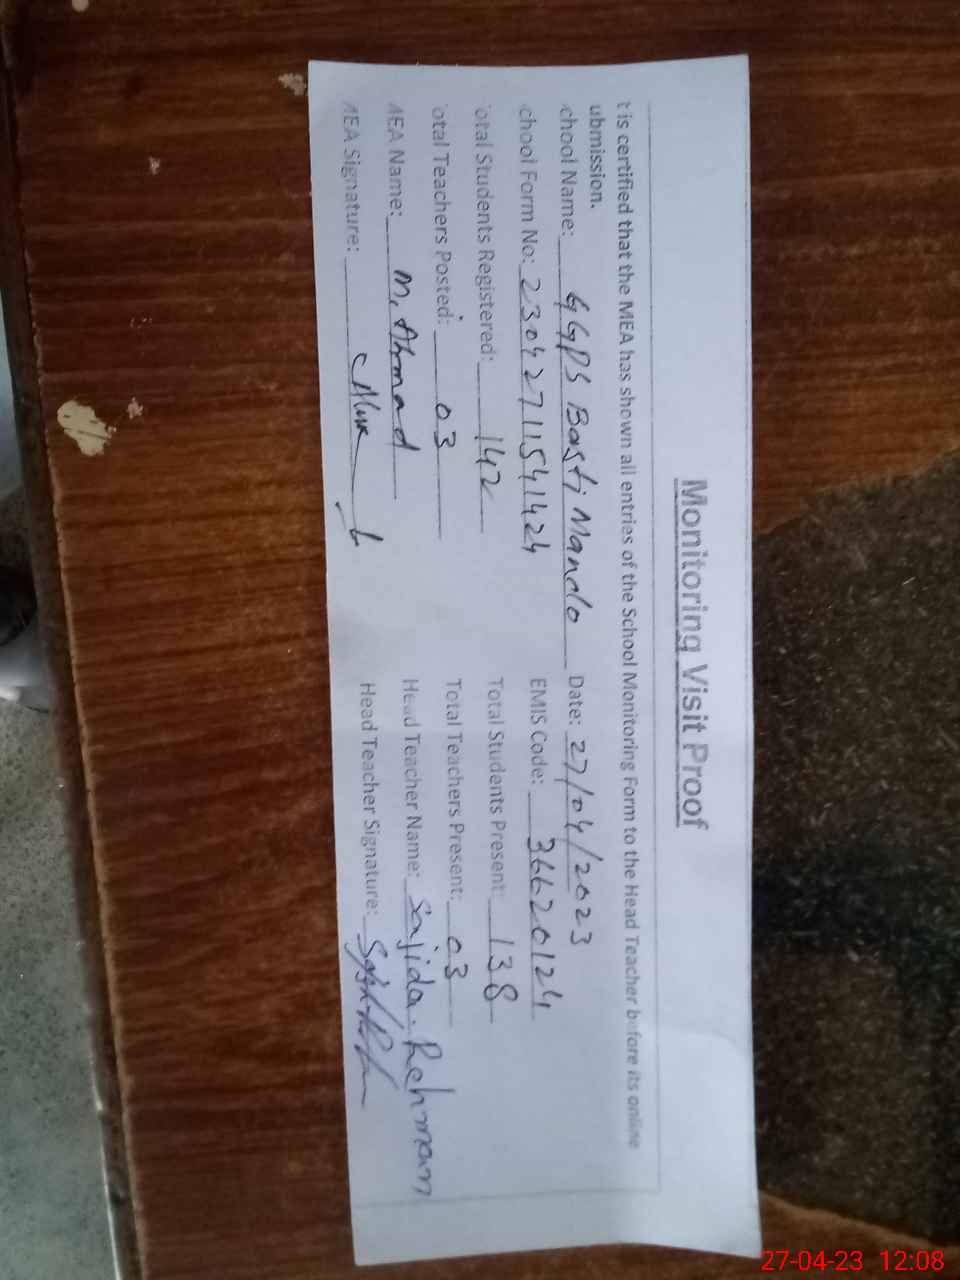 Monitoring Visit Proof
t is certified that the MEA has shown all entries of the School Monitoring Form to the Head Teacher before its online
ubmission.
chool Name: GGPS Basti Mando Date: 27/04/2023
chool Form No: 23042711541424 EMIS Code: 36620124
otal Students Registered: 142 Total Students Present: 138
otal Teachers Posted: 03 Total Teachers Present: 03
MEA Name: M. Ahmad Head Teacher Name: Sajida Rehman
MEA Signature: Head Teacher Signature:
27-04-23 12:08